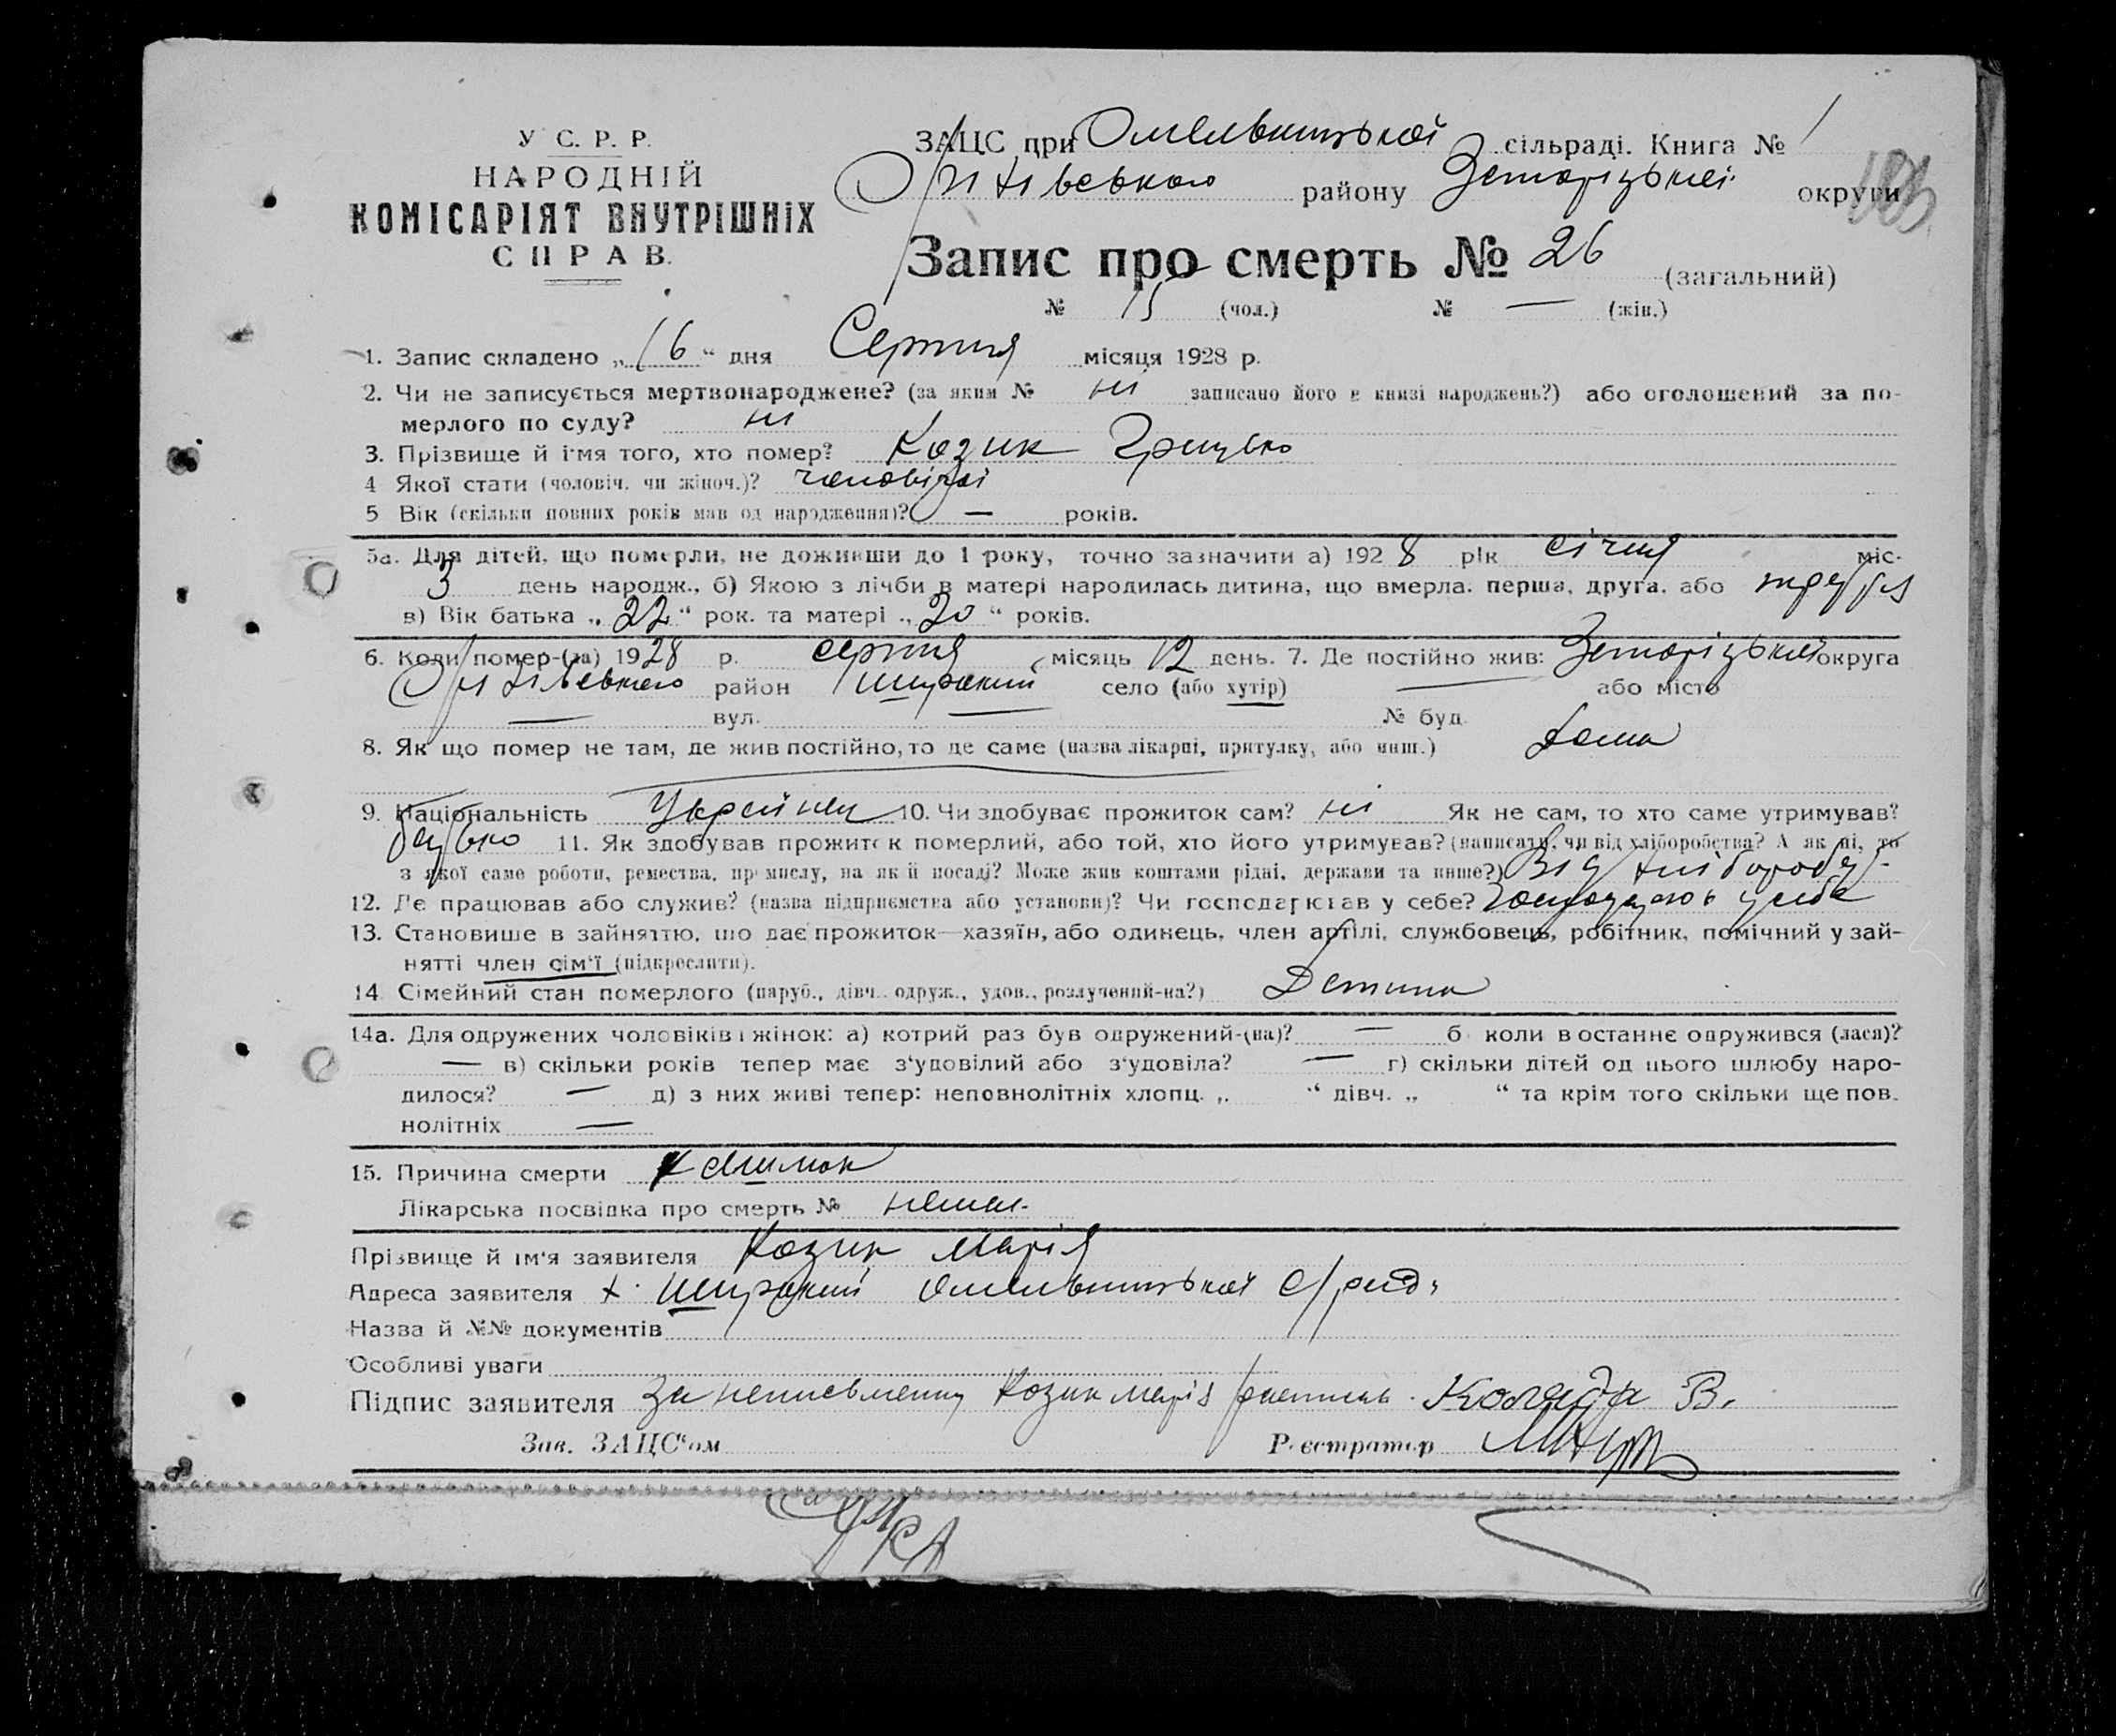 У С. Р. Р.
НАРОДНІЙ
КОМІСАРІЯТ ВНУТРІШНІХ
СПРАВ.
ЗАЦС при Омельницької сільраді. Книга № 1
Оріхівського району Запорізької округи
Запис про смерть № 26 (загальний)
№ 15 (чол.) № — (жін.)
1. Запис складено „16“ дня Серпня місяця 1928 р.
2. Чи не записується мертвонароджене? (за яким № ні записано його в книзі народжень?) або оголошений за по-
мерлого по суду? ні
3. Прізвище й ім'я того, хто помер? Козик Грицько
4 Якої стати (чоловіч. чи жіноч.)? чоловічої
5 Вік (скільки повних років мав од народження)? — років.
5а. Для дітей, що померли, не доживши до 1 року, точно зазначити а) 1928 рік січня міс.
3 день народж., б) Якою з лічби в матері народилась дитина, що вмерла. перша, друга, або
в) Вік батька „22“ рок. та матері „20“ років.
6. Коли помер-(ла) 1928 р. серпня місяць 12 день. 7. Де постійно жив: Запорізької округа
Оріхівського район Широкий село (або хутір) — або місто
— вул. — № буд.
8. Як що помер не там, де жив постійно, то де саме (назва лікарні, притулку, або инш.) дома
9. Національність Українец 10. Чи здобуває прожиток сам? ні Як не сам, то хто саме утримував?
батько 11. Як здобував прожиток померлий, або той, хто його утримував? (написати, чи від хліборобства? А як ні, то
з якої саме роботи, ремества, промислу, на якій посаді? Може жив коштами рідні, держави та инше?) Від хлібороб.
12. Де працював або служив? (назва підприємства або установи)? Чи господарював у себе? у себе
13. Становище в зайняттю, що дає прожиток—хазяїн, або одинець, член артілі, службовець, робітник, помічний у зай-
нятті член сім'ї (підкреслити).
14 Сімейний стан померлого (паруб., дівч. одруж., удов., розлучений-на?) Детина
14а. Для одружених чоловіків і жінок: а) котрий раз був одружений-(на)? — б коли в останнє одружився (лася)?
— в) скільки років тепер має з'удовілий або з'удовіла? — г) скільки дітей од цього шлюбу наро-
дилося? — д) з них живі тепер: неповнолітніх хлопц. „ “ дівч. „ “ та крім того скільки ще пов.
нолітніх —
15. Причина смерти кашлюк
Лікарська посвідка про смерть № немає
Прізвище й ім'я заявителя Козик Марія
Адреса заявителя х. Широкий Омельницької с/рад.
Назва й №№ документів
Особливі уваги
Підпис заявителя За неписьменну Козик Марія розписавсь Коляда В.
Зав. ЗАЦС'ом Реєстратор